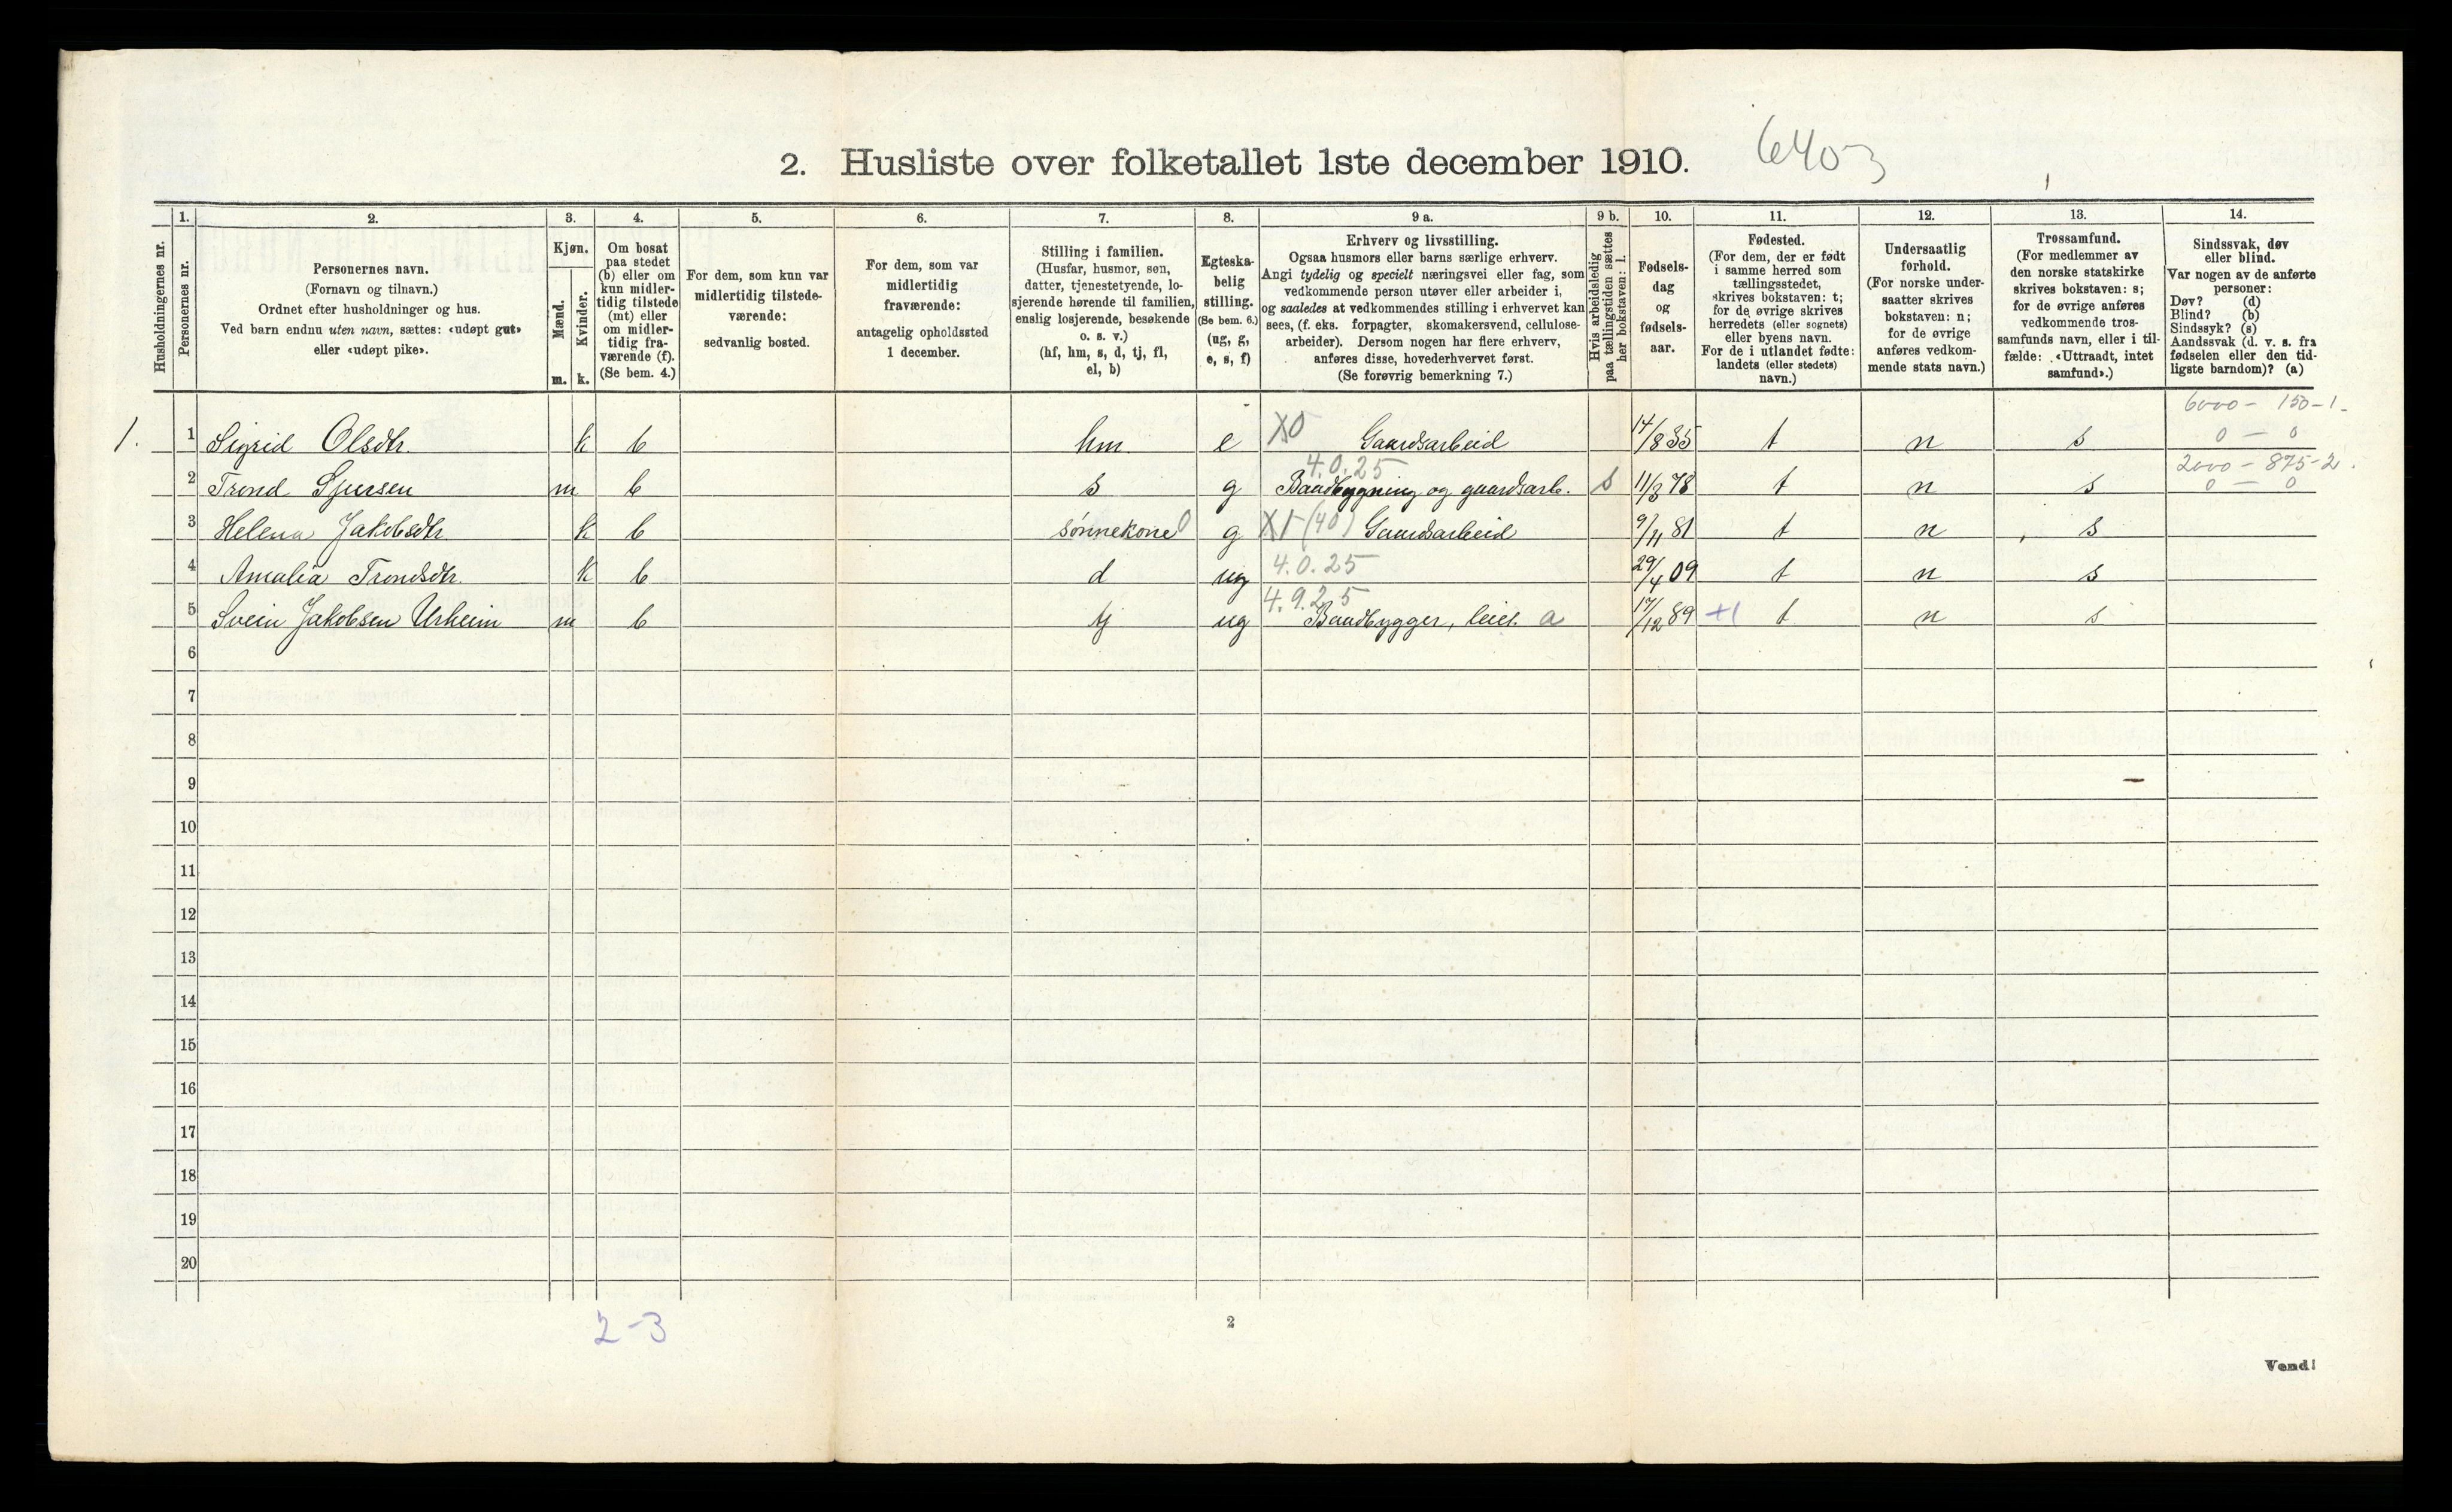 2. Husliste over folketallet 1ste december 1910. 6403
Husholdningernes nr.
1.
Personernes nr.
2.
Personernes navn.
(Fornavn og tilnavn.)
Ordnet efter husholdninger og hus.
Ved barn endnu uten navn, sættes: «udøpt gut»
eller «udøpt pike».
3.
Kjøn.
Mænd.
m.
Kvinder.
k.
4.
Om bosat
paa stedet
(b) eller om
kun midler-
tidig tilstede
(mt) eller
om midler-
tidig fra-
værende (f).
(Se bem. 4.)
5.
For dem, som kun var
midlertidig tilstede-
værende:
sedvanlig bosted.
6.
For dem, som var
midlertidig
fraværende:
antagelig opholdssted
1 december.
7.
Stilling i familien.
(Husfar, husmor, søn,
datter, tjenestetyende, lo-
sjerende hørende til familien,
enslig losjerende, besøkende
o. s. v.)
(hf, hm, s, d, tj, fl,
el, b)
8.
Egteska-
belig
stilling.
(Se bem. 6.)
(ug, g,
e, s, f)
9 a.
Erhverv og livsstilling.
Ogsaa husmors eller barns særlige erhverv.
Angi tydelig og specielt næringsvei eller fag, som
vedkommende person utøver eller arbeider i,
og saaledes at vedkommendes stilling i erhvervet kan
sees, (f. eks. forpagter, skomakersvend, cellulose-
arbeider). Dersom nogen har flere erhverv,
anføres disse, hovederhvervet først.
(Se forøvrig bemerkning 7.)
9 b.
Hvis arbeidsledig
paa tællingstiden sættes
her bokstaven: l.
10.
Fødsels-
dag
og
fødsels-
aar.
11.
Fødested.
(For dem, der er født
i samme herred som
tællingsstedet,
skrives bokstaven: t;
for de øvrige skrives
herredets (eller sognets)
eller byens navn.
For de i utlandet fødte:
landets (eller stedets)
navn.)
12.
Undersaatlig
forhold.
(For norske under-
saatter skrives
bokstaven: n;
for de øvrige
anføres vedkom-
mende stats navn.)
13.
Trossamfund.
(For medlemmer av
den norske statskirke
skrives bokstaven: s;
for de øvrige anføres
vedkommende tros-
samfunds navn, eller i til-
fælde: «Uttraadt, intet
samfund».)
14.
Sindssvak, døv
eller blind.
Var nogen av de anførte
personer:
Døv? (d)
Blind? (b)
Sindssyk? (s)
Aandssvak (d. v. s. fra
fødselen eller den tid-
ligste barndom)? (a)
6000 - 150 - 1-
1. 1 Sigrid Olsdtr. k b hm e X0 Gaardsarbeid 14/8 35 t n s 0 - 0
4.0.25 2000 - 875-2.
2 Trond Sjursen m b s g Baadbygning og gaardsarb. s 11/3 78 t n s 0 - 0
3 Helena Jakobsdtr. k b sønnekone 0 g X1 (40) Gaardsarbeid 9/11 81 t n s
4 Amalia Trondsdtr. k b d ug 4.0.25 29/4 09 t n s
4.9.25
5 Svein Jakobsen Urheim m b tj ug Baadbygger, leiet. a 17/12 89 +1 t n s
6
7
8
9
10
11
12
13
14
15
16
17
18
19
20
2-3
2
Vend!